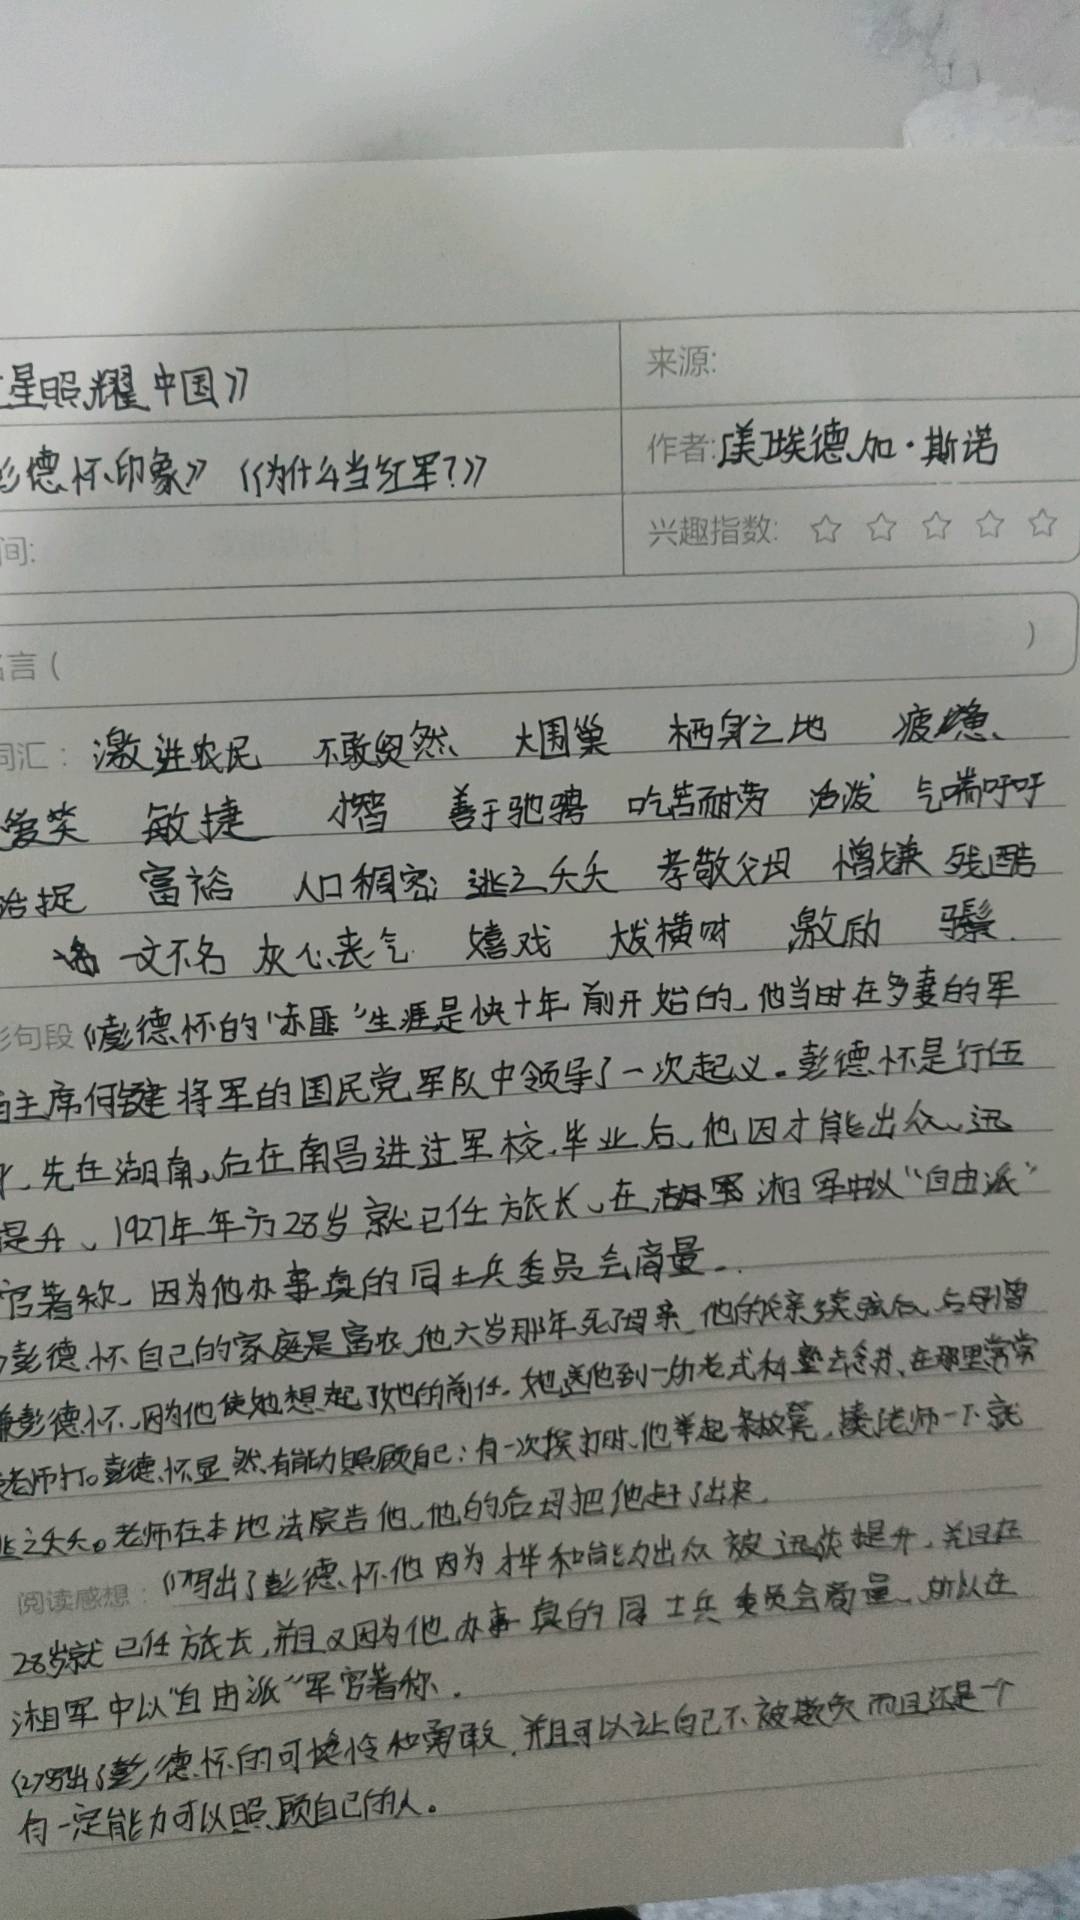 星照耀中国》
来源:
彭德怀印象》《为什么当红军?》
作者:[美]埃德加·斯诺
间:
兴趣指数: ☆ ☆ ☆ ☆ ☆
名言( )
词汇: 激进农民 不敢贸然 大围巢 栖身之地 疲惫
爱笑 敏捷 善于驰骋 吃苦耐劳 活泼 气喘吁吁
捉 富裕 人口稠密 逃之夭夭 孝敬父母 憎嫌 残酷
一文不名 灰心丧气 嬉戏 发横财 激励 鬃
彩句段 彭德怀的"赤匪"生涯是快十年前开始的,他当时在多妻的军
主席何键将军的国民党军队中领导了一次起义。彭德怀是行伍
,先在湖南,后在南昌进过军校,毕业后,他因才能出众、迅
提升、1927年年方28岁就已任旅长、在湘军中以"自由派"
官著称,因为他办事真的同士兵委员会商量.
彭德怀自己的家庭是富农,他六岁那年死了母亲,他的父亲续弦后,后母憎
嫌彭德怀,因为他使她想起了她的前任。她送他到一所老式私塾去念书、在那里常常
老师打。彭德怀显然有能力照顾自己:有一次挨打时,他举起一条板凳,揍老师一下,就
逃之夭夭。老师在本地法院告他、他的后母把他赶了出来.
阅读感想: 写出了彭德怀他因为才华和能力出众被迅速提升,并且在
28岁就已任旅长,并且又因为他办事真的同士兵委员会商量、所以在
湘军中以"自由派"军官著称.
(2)写出了彭德怀的可怜和勇敢,并且可以让自己不被欺负而且还是一个
有一定能力可以照顾自己的人。